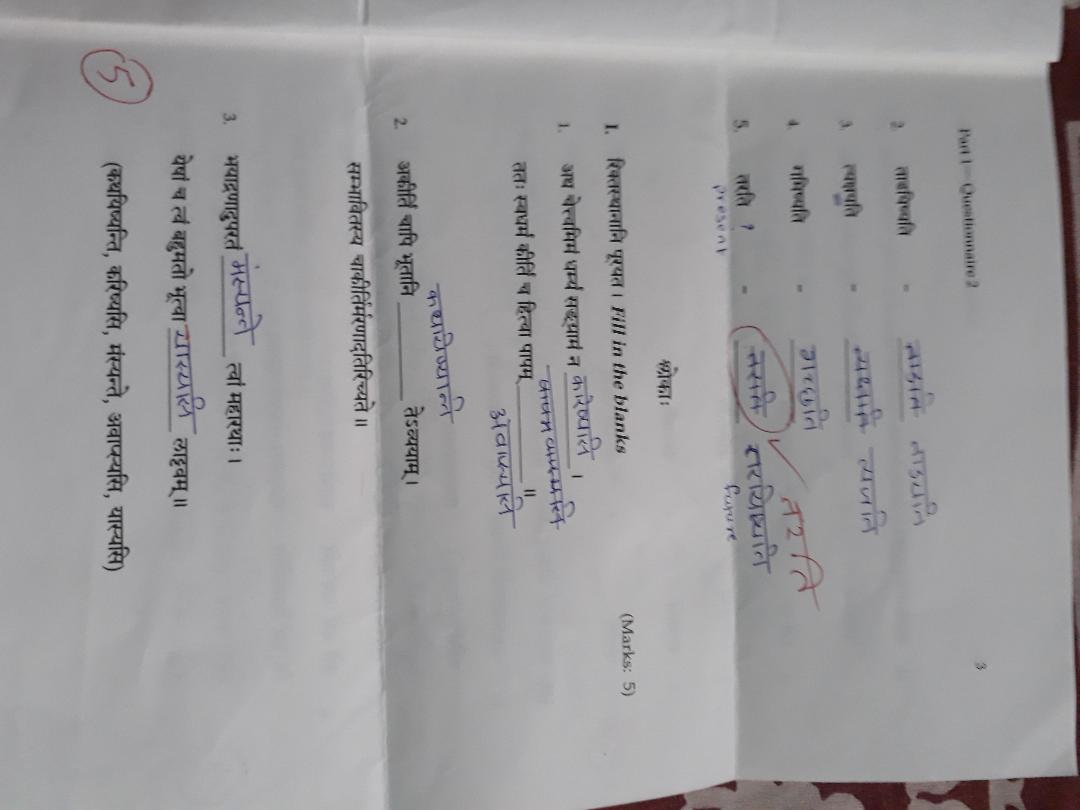 Part 1 – Questionnaire 2
3
2. ताडयिष्यति = ताडति ताडयति
3. त्यक्षयति = त्यजति
4. गमिष्यति = गच्छति
तरति
5. तरति ? = तरति तरयिष्यति
present future
श्लोकाः
I. रिक्तस्थानानि पूरयत । Fill in the blanks (Marks: 5)
1. अथ चेत्त्वमिमं धर्म्यं सङ्ग्रामं न करिष्यसि ।
पापमवाप्स्यसि
ततः स्वधर्मं कीर्तिं च हित्वा पापम् ________ ॥
अवाप्स्यसि
कथयिष्यान्ति
2. अकीर्तिं चापि भूतानि ________ तेऽव्ययाम् ।
सम्भावितस्य चाकीर्तिर्मरणादतिरिच्यते ॥
3. भयाद्रणादुपरतं मंस्यन्ते त्वां महारथाः ।
येषां च त्वं बहुमतो भूत्वा यास्यसि लाट्टवम् ॥
5
(कथयिष्यन्ति, करिष्यसि, मंस्यन्ते, अवाप्स्यसि, यास्यसि)